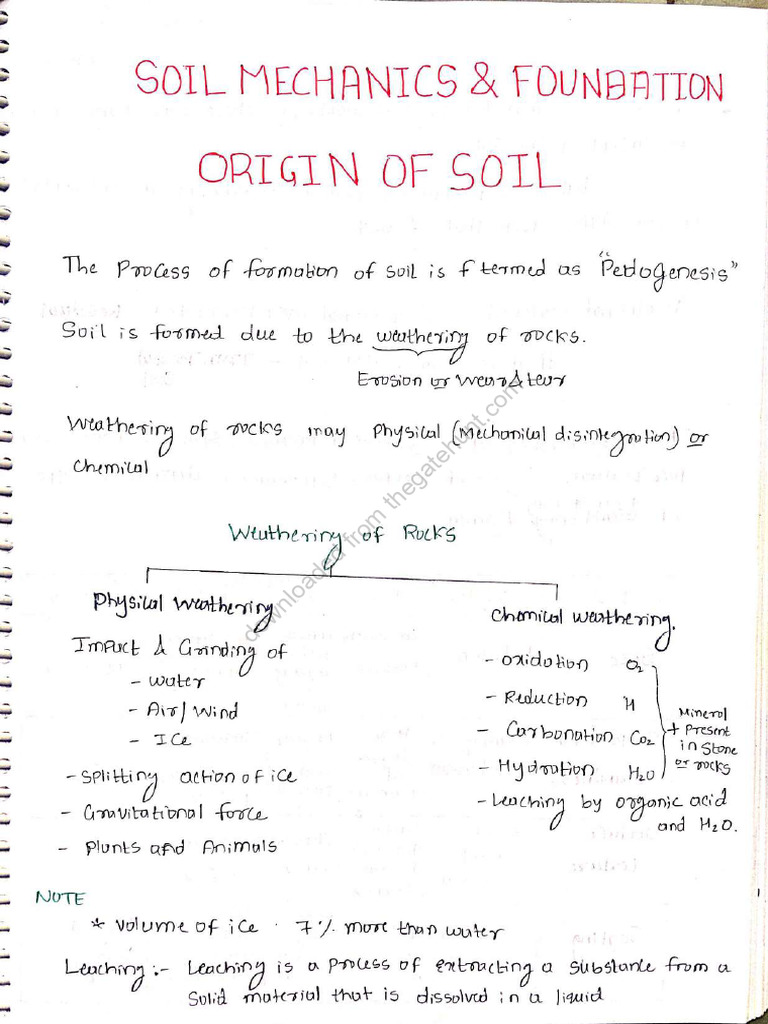 SOIL MECHANICS & FOUNDATION
ORIGIN OF SOIL
The Process of formation of soil is f termed as "Pedogenesis"
Soil is formed due to the weathering of rocks.
Erosion or wear & tear
Weathering of rocks may Physical (Mechanical disintegration) or
Chemical
Weathering of Rocks
Physical Weathering
Chemical weathering.
Impact & Grinding of
- water
- Air/Wind
- Ice
- Splitting action of ice
- Gravitational force
- Plants and Animals
- Oxidation O2
- Reduction H
- Carbonation CO2
- Hydration H2O
+ Mineral
Present
in Stone
or rocks
- Leaching by organic acid
and H2O.
NOTE
* Volume of ice 7% more than water
Leaching :- Leaching is a process of extracting a substance from a
solid material that is dissolved in a liquid
downloaded from thegatehunt.com